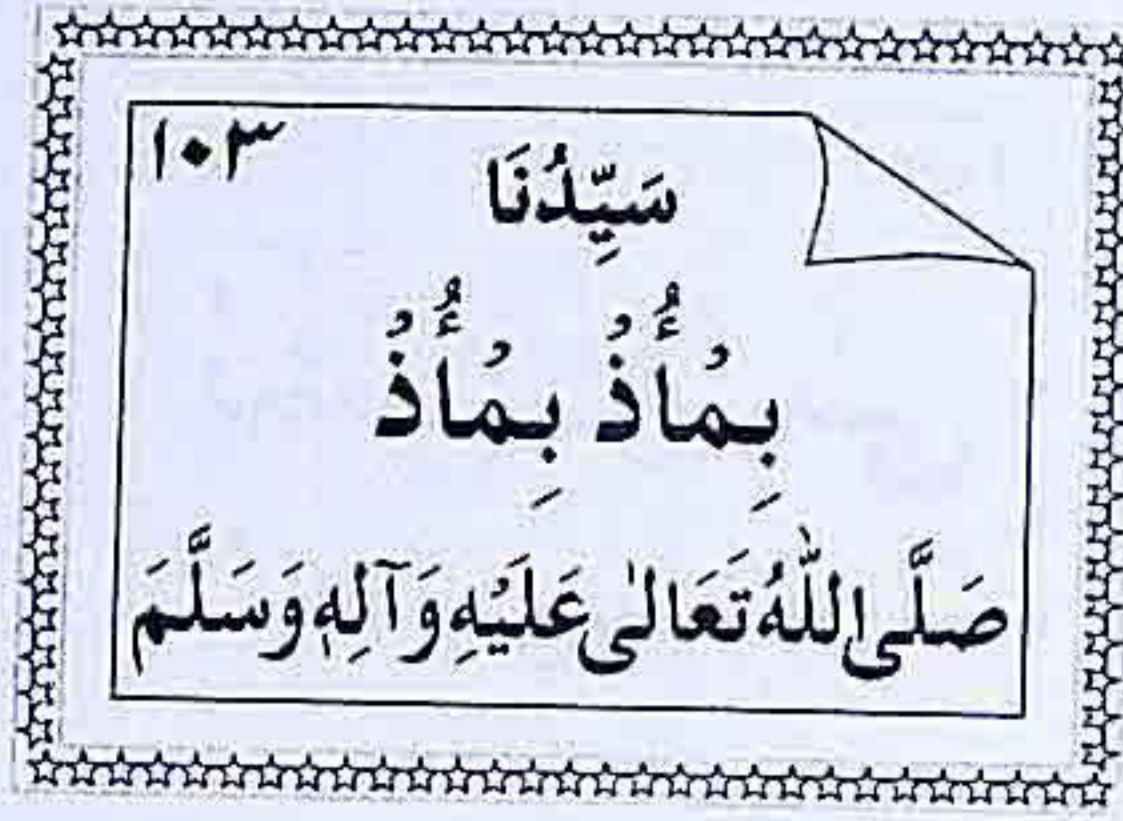 ١٠٣
سَيِّدُنَا
بِمُأُذُ بِمُأُذُ
صَلَّى اللّٰهُ تَعَالٰی عَلَيْهِ وَآلِهٖ وَسَلَّمَ